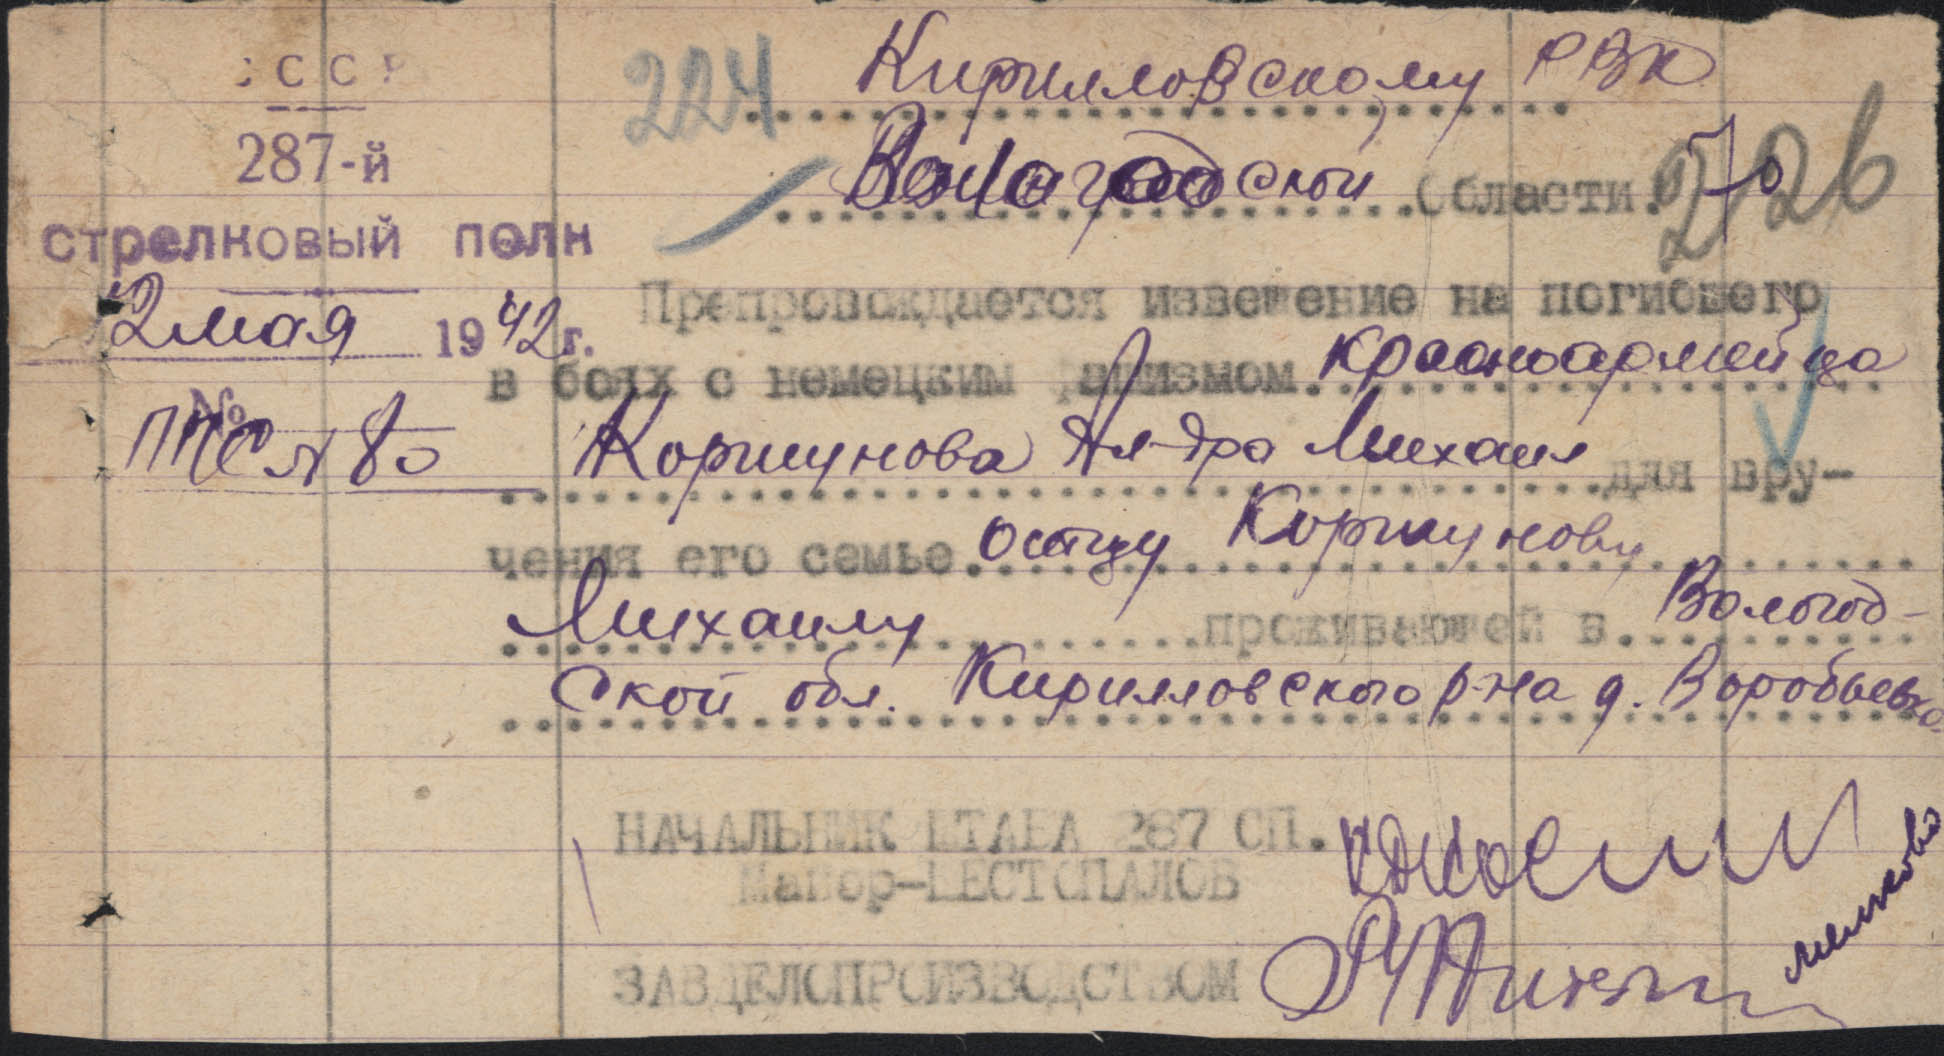 СССР
287-й
стрелковый полк
2 мая 1942 г.
№
ППС № 80
224
Кирилловскому РВК
Вологодской области.
226
Препровождается извещение на погибшего
в боях с немецким фашизмом красноармейца
Коршунова Ал-дра Михаил для вру-
чения его семье отцу Коршунову
Михаилу проживающей в Вологод-
ской обл. Кирилловского р-на д. Воробьево
НАЧАЛЬНИК ШТАБА 287 СП.
Майор-ШЕСТОПАЛОВ
ЗАВДЕЛОПРОИЗВОДСТВОМ